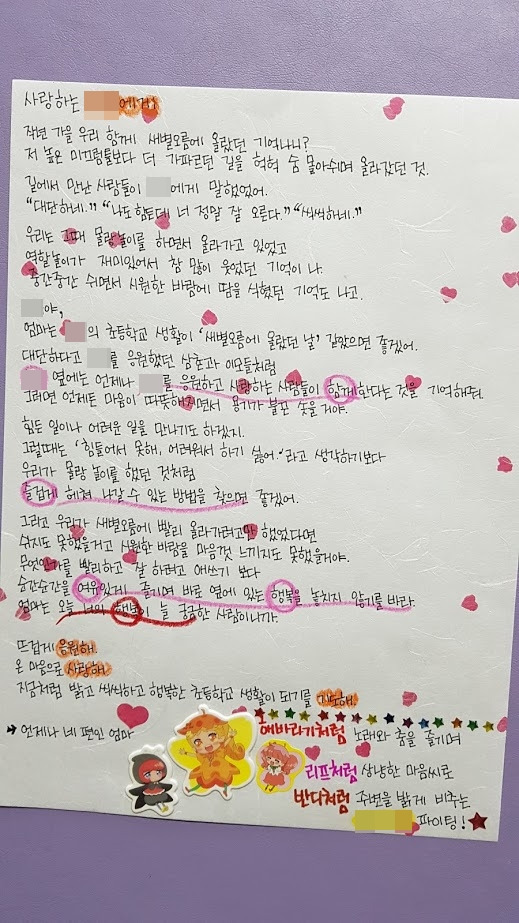 사랑하는 에게!
작년 가을 우리 함께 새별오름에 올랐던 기억나니?
저 높은 미끄럼틀보다 더 가파르던 길을 헉헉 숨 몰아쉬며 올라갔던 것.
길에서 만난 사람들이 에게 말했었어.
"대단하네." "나도 힘든데 너 정말 잘 오른다." "씩씩하네."
우리는 그때 몰랑놀이를 하면서 올라가고 있었고
역할놀이가 재미있어서 참 많이 웃었던 기억이 나.
중간중간 쉬면서 시원한 바람에 땀을 식혔던 기억도 나고.
야,
엄마는 의 초등학교 생활이 '새별오름에 올랐던 날' 같았으면 좋겠어.
대단하다고 를 응원했던 삼촌과 이모들처럼
옆에는 언제나 를 응원하고 사랑하는 사람들이 함께한다는 것을 기억하렴.
그러면 언제든 마음이 따뜻해지면서 용기가 불끈 솟을 거야.
힘든 일이나 어려운 일을 만나기도 하겠지.
그럴때는 '힘들어서 못해, 어려워서 하기 싫어.'라고 생각하기보다
우리가 몰랑 놀이를 했던 것처럼
즐겁게 헤쳐 나갈 수 있는 방법을 찾으면 좋겠어.
그리고 우리가 새별오름에 빨리 올라가려고만 했었다면
쉬지도 못했을거고 시원한 바람을 마음껏 느끼지도 못했을거야.
무엇인가를 빨리하고 잘 하려고 애쓰기 보다
순간순간을 여유있게 즐기며 바로 옆에 있는 행복을 놓치지 않기를 바라.
엄마는 오늘 너의 행복이 늘 궁금한 사람이니까.
뜨겁게 응원해.
온 마음으로 사랑해.
지금처럼 밝고 씩씩하고 행복한 초등학교 생활이 되기를 기도해.
언제나 네 편인 엄마
해바라기처럼 노래와 춤을 즐기며
리프처럼 상냥한 마음씨로
반디처럼 주변을 밝게 비추는
파이팅!